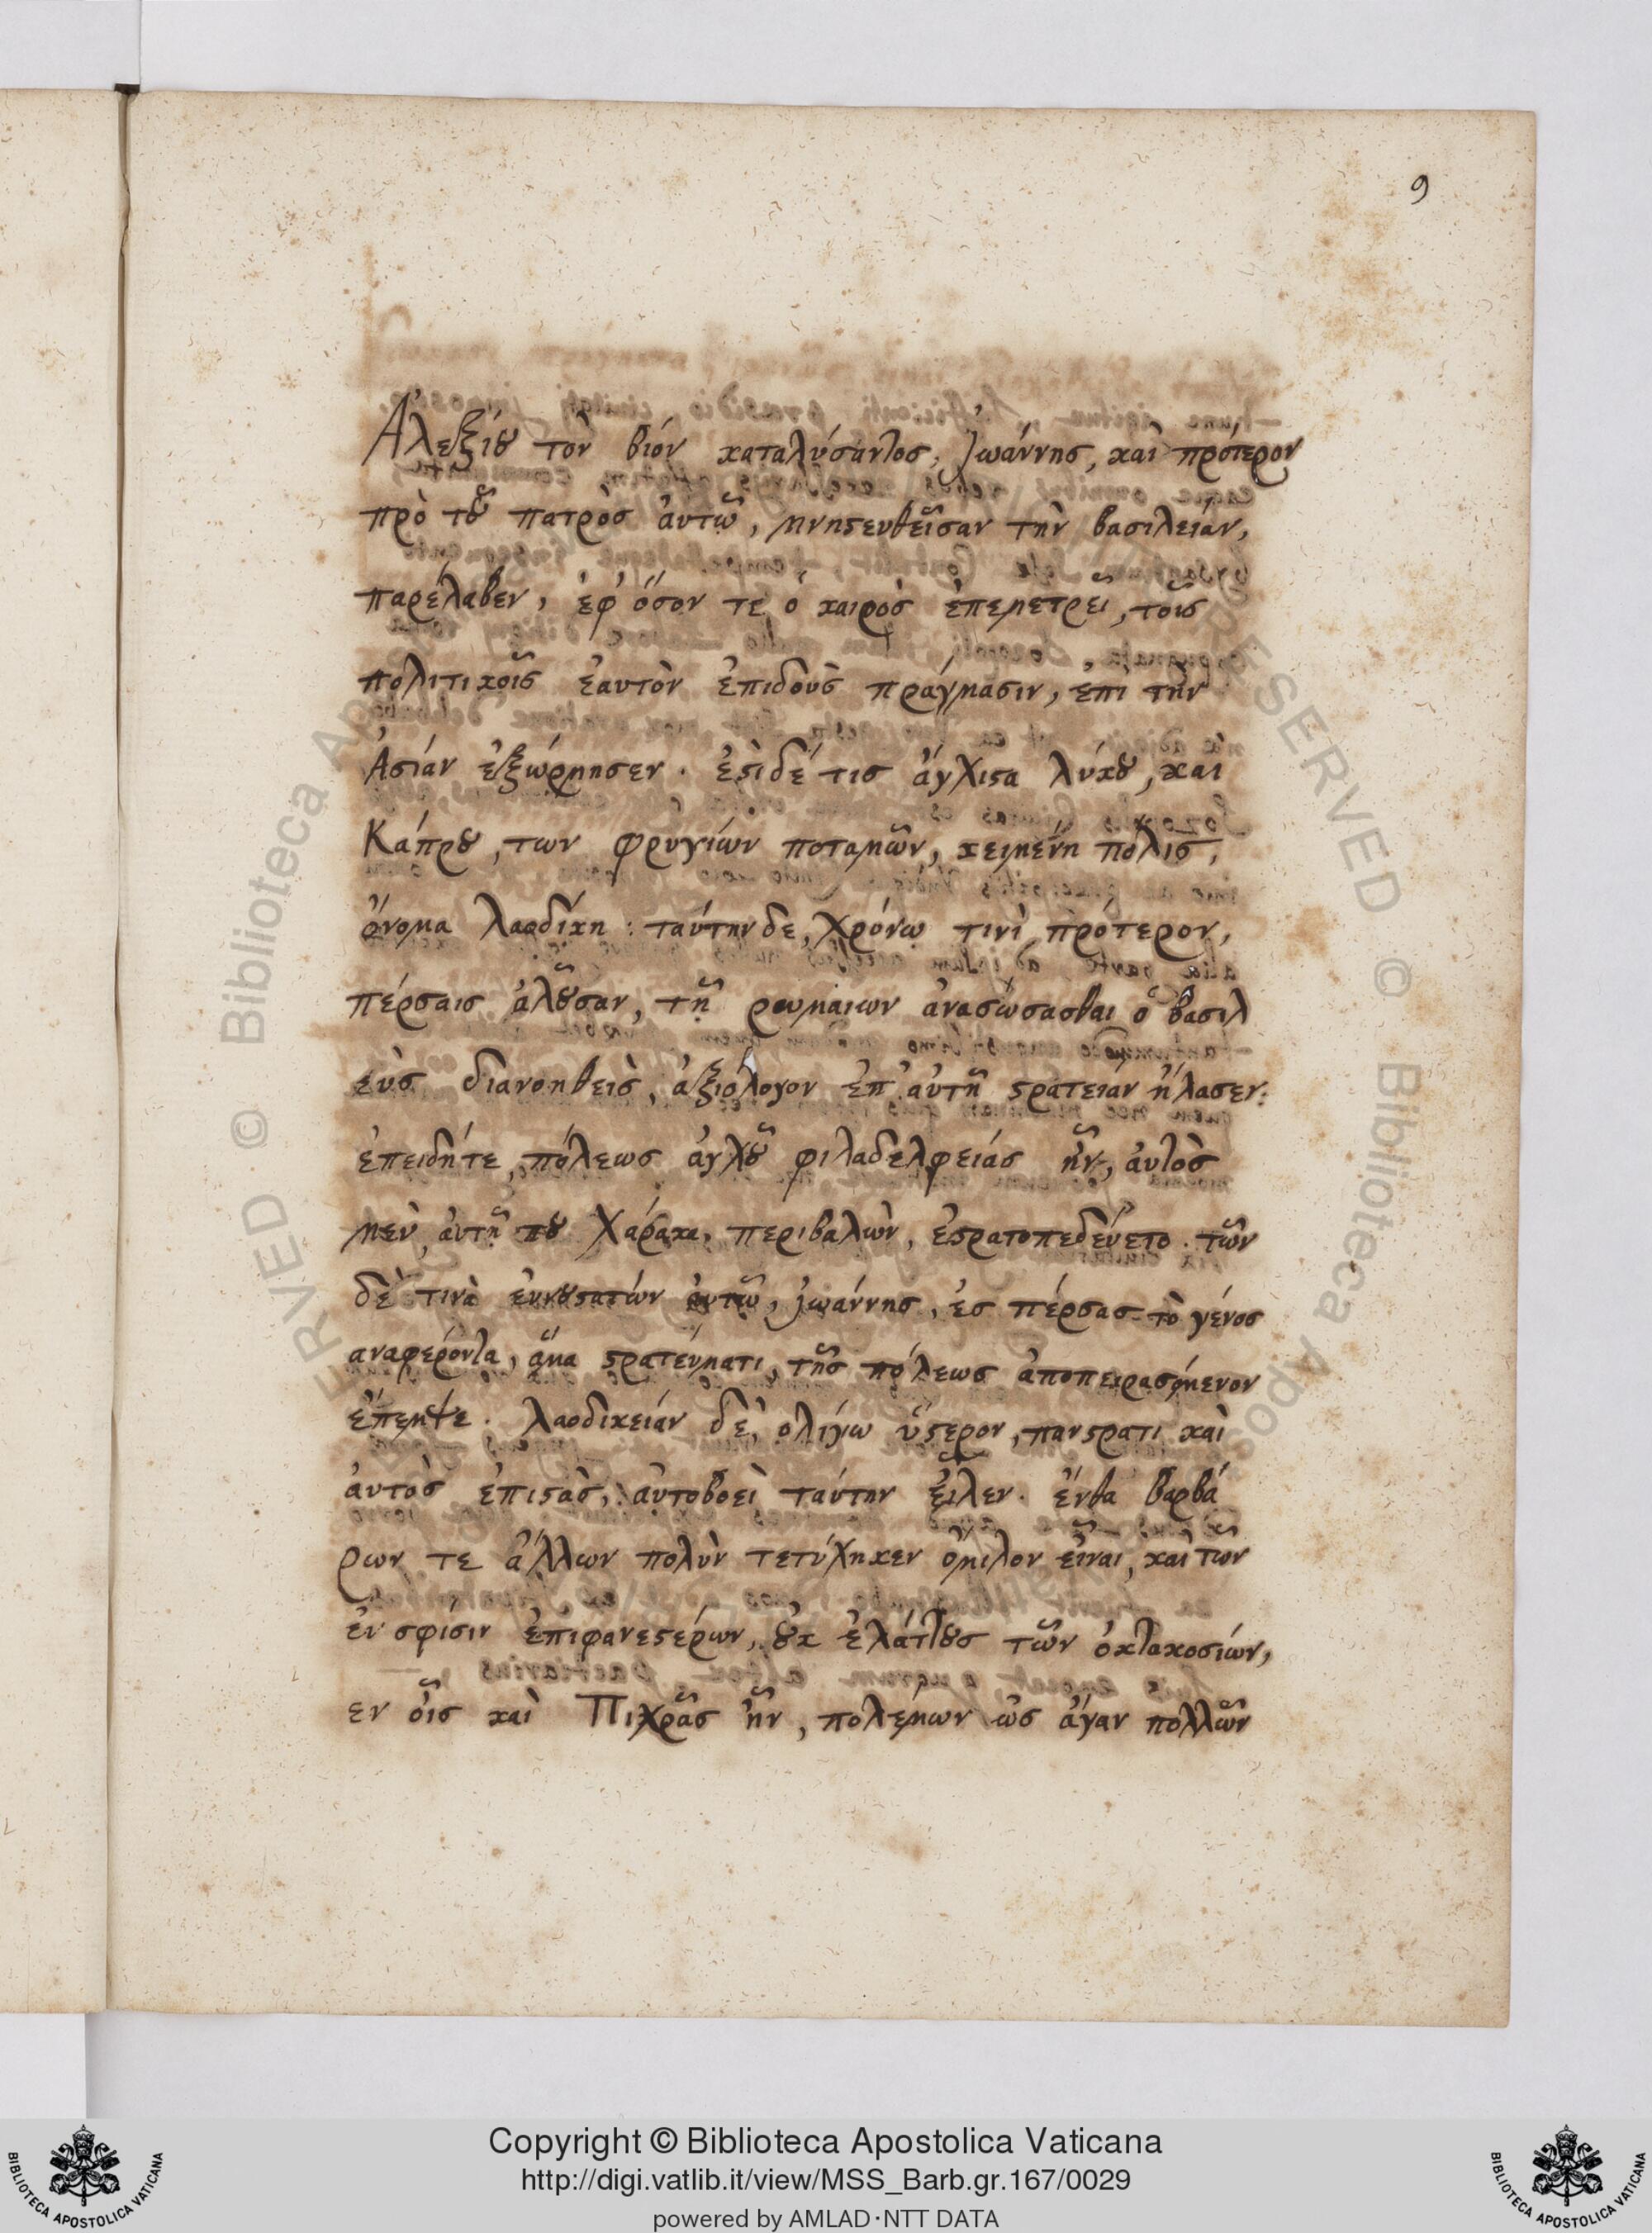 9
Ἀλεξίου τὸν βίον καταλύσαντος, Ἰωάννης, καὶ πρότερον
πρὸ τοῦ πατρὸς ἀυτῶ, μνηστευθεῖσαν τὴν βασιλείαν,
παρέλαβεν, ἐφ' ὅσον τε ὁ καιρὸς ἐπεμετρεῖ, τοῖς
πολιτικοῖς ἑαυτὸν ἐπιδοὺς πράγμασιν, ἐπι τὴν
Ἀσίαν ἐξώρμησεν. ἐστὶ δέ τις ἄγχιστα λύκου, και
Κάπρου, των φρυγίων ποταμῶν, κειμένη πόλις,
ὄνομα λαοδίκη : ταύτην δε, χρόνω τινὶ πρότερον,
πέρσαις ἁλοῦσαν, τῇ ρωμαιων ἀνασώσασθαι ὁ βασιλ
εὺς διανοηθεὶς, ἀξιόλογον ἐπ' αὐτῇ στρατειαν ἤλασεν:
ἐπειδήτε, πόλεως ἀγχοῦ φιλαδελφείάς ἦν, ἀυτὸς
μεν, ἀυτῇ που Χάρακα, περιβαλὼν, ἐστρατοπεδεύετο. τῶν
δὲ τινὰ ἐυνουστατών ἀυτῶ, ἰωάννης, ἐς πέρσας τὸ γένος
αναφερόντα, ἅμα στρατεύματι, τῆς πόλεως ἀποπειρασόμενον
ἔπεμψε. λαοδικείάν δὲ, ολίγω ὕστερον, πανστρατι καὶ
ἀυτὸς ἐπιστὰς, αὐτοβοεὶ ταύτην εἷλεν. ἔνθα βαρβά
ρων τε ἄλλων πολὺν τετύχηκεν ὅμιλον εἶναι, καὶ τῶν
ἐν σφίσιν ἐπιφανεστέρων, οὐκ ἐλάττους τῶν ὀκτακοσίων,
εν οἷς καὶ Πικρᾶς ἦν, πολεμων ὡς ἄγαν πολλῶν
Copyright © Biblioteca Apostolica Vaticana
http://digi.vatlib.it/view/MSS_Barb.gr.167/0029
powered by AMLAD·NTT DATA